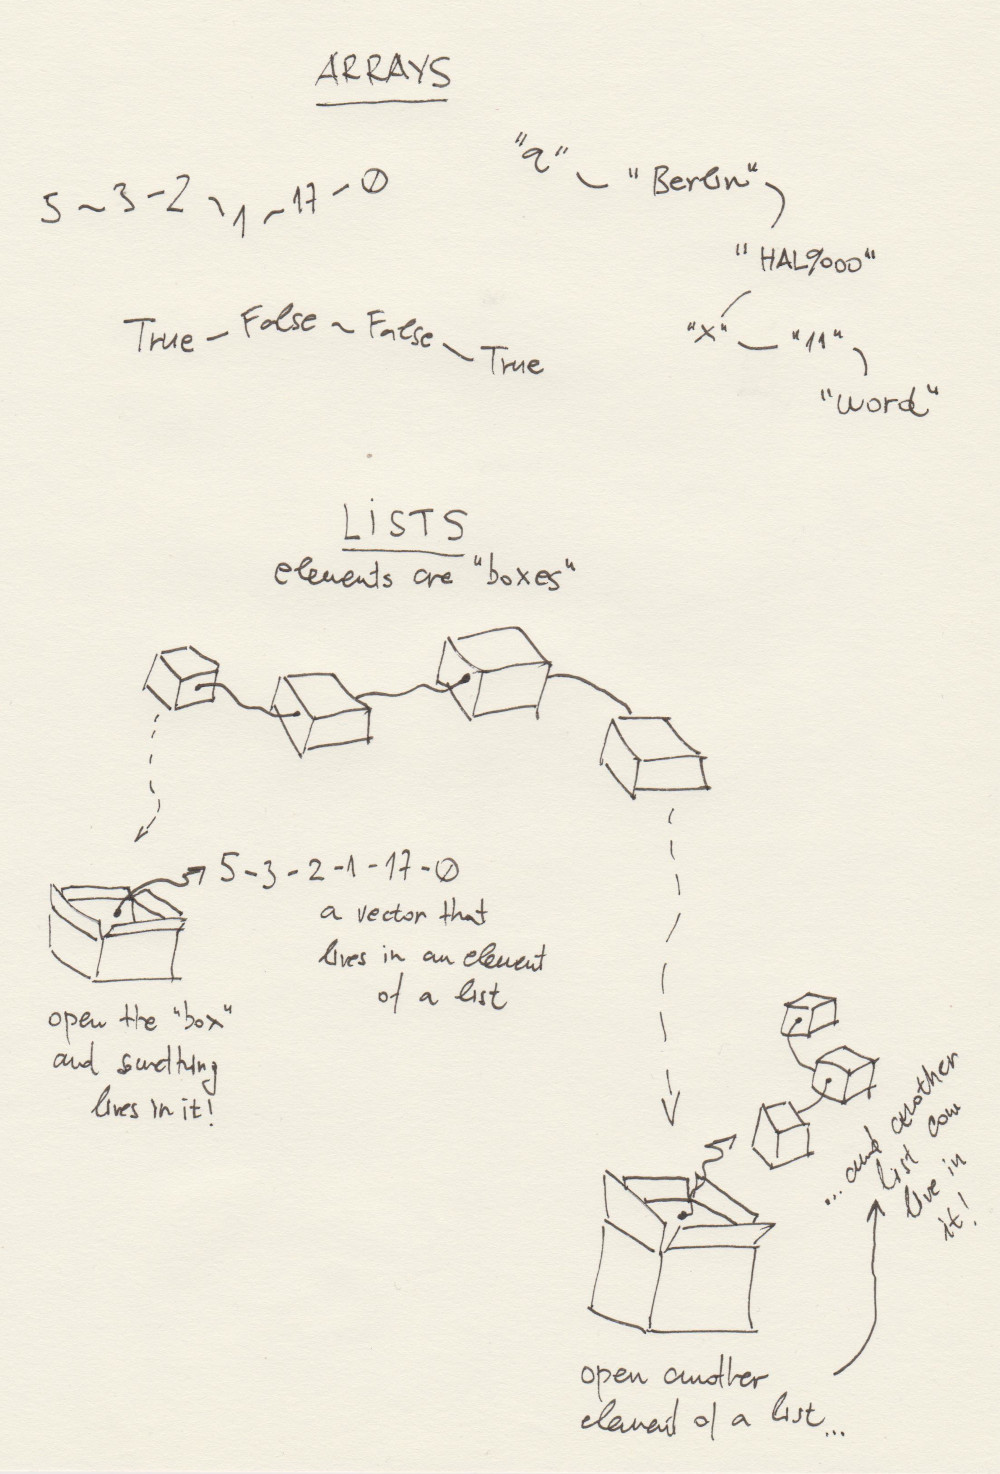 ARRAYS
5 ~ 3 - 2 ~ 1 ~ 17 - 0
"a" ~ "Berlin"
"HAL9000"
"x" - "11"
"word"
True - False ~ False ~ True
LiSTS
elements are "boxes"
5-3-2-1-17-0
a vector that
lives in an element
of a list
open the "box"
and something
lives in it!
...and another
list can
live in
it!
open another
element of a list...